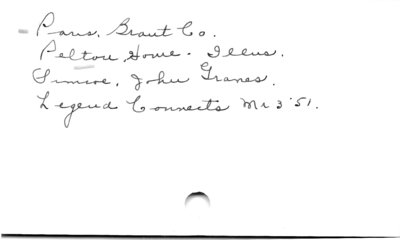 Paris, Brant Co.
Pelton, Home - Illus.
Simcoe, John Graves.
Legend Connects Mr 3 '51.